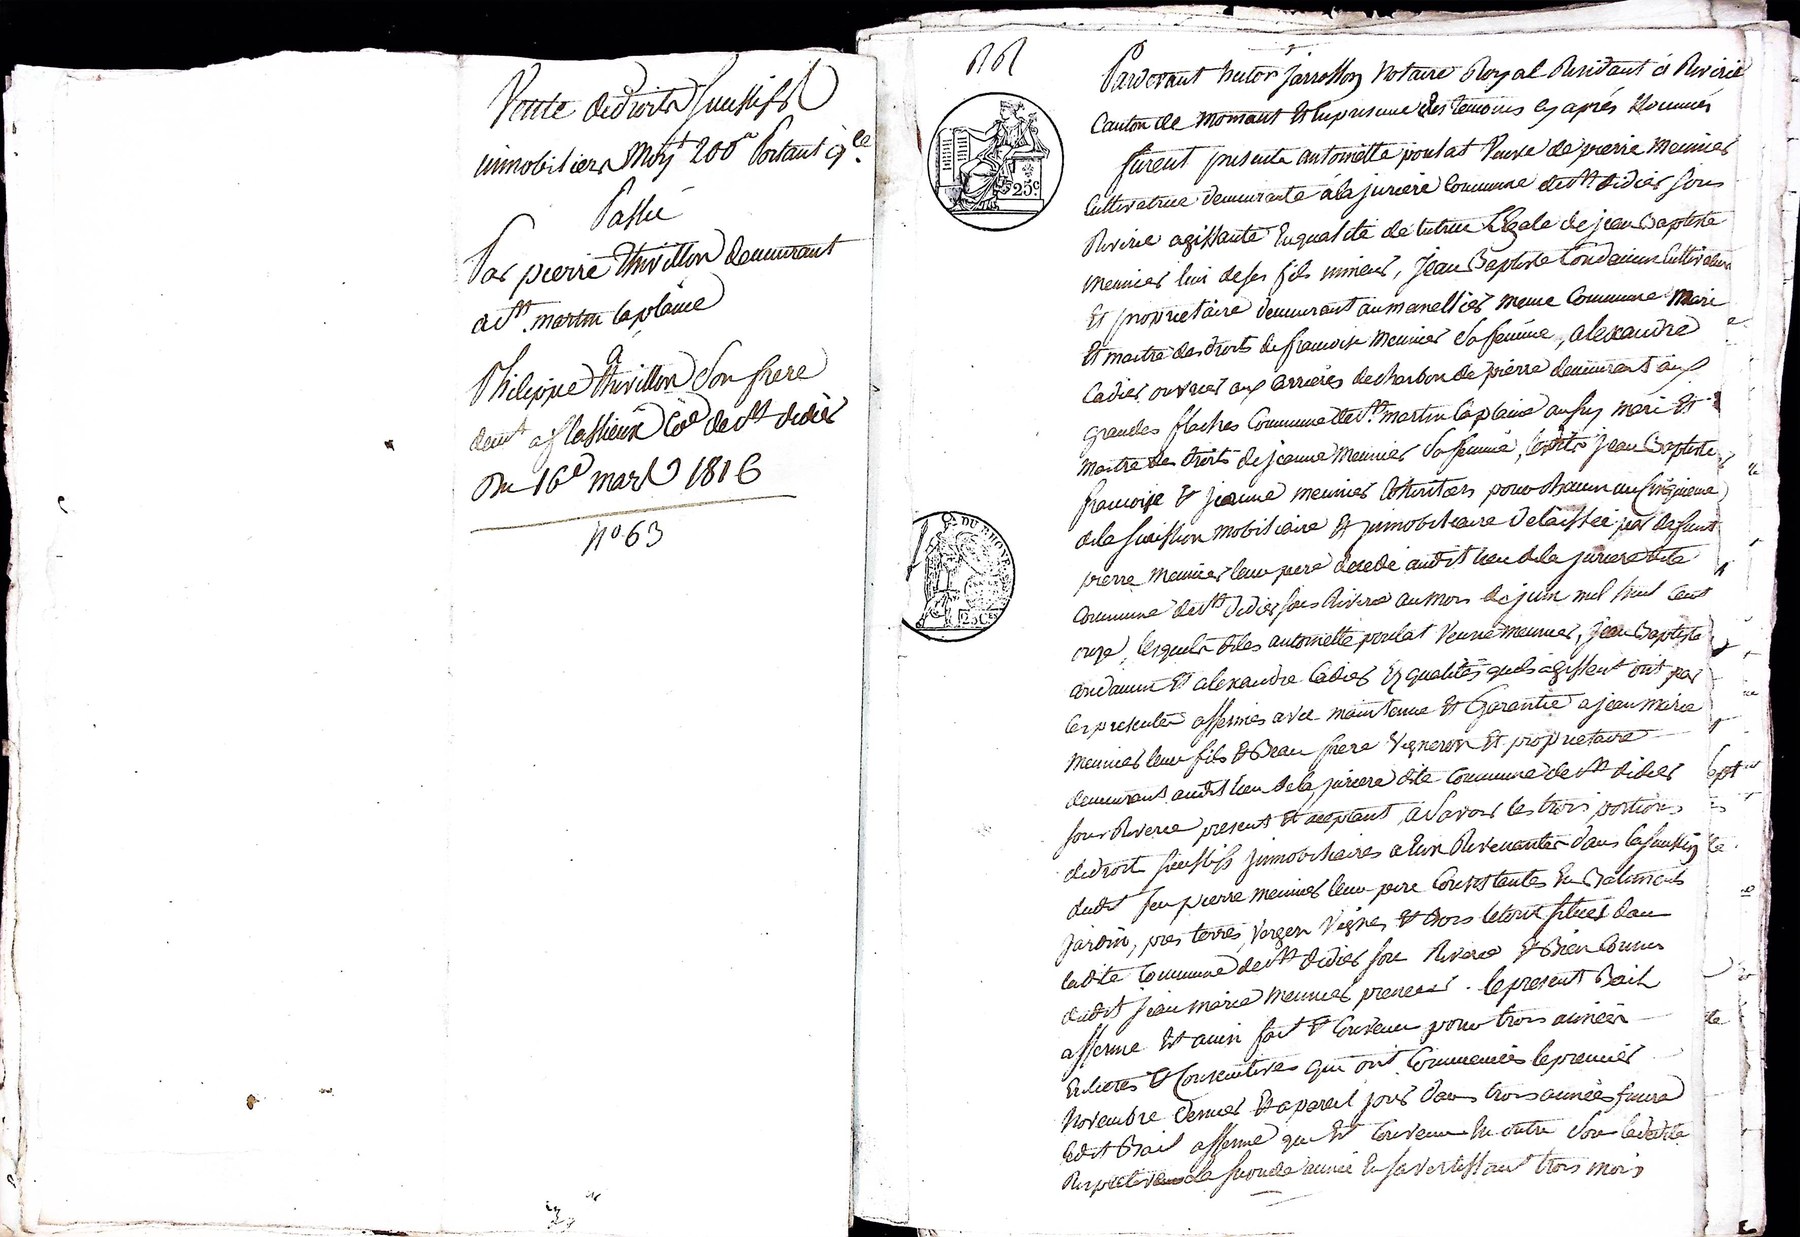 Vente de droits successifs
immobiliers Moyt 200f Portant qce
Passée
Par pierre thivillon demeurant
a St. martin laplaine
a
Philippe thivillon son frere
demt a flassieux Coe de St didier
Du 16e mars 1816
no 63
25c
DU RHONE
25C
Pardevant hector jarrosson Notaire Royal Residant à Riverie
Canton de mornant Et En presence des temoins cy après Nommés
furent presents antoinette poulat Veuve de pierre Meunier
Cultivatrice demeurante à la juriere Commune de St didier sous
Riverie agissante En qualité de tutrice Légale de jean Baptiste
Meunier l'un de ses fils mineur, Jean Baptiste Condamin Cultivateur
Et proprietaire demeurant au manellier meme Commune Mari
Et maitre des droits de francoise Meunier sa femme, alexandre
Cadier ouvrier aux carrieres de charbon de pierre demeurant aux
grandes flaches Commune de St. martin laplaine aussy mari Et
maitre des droits de jeanne Meunier sa femme, lesdits jean Baptiste
francoise Et jeanne meunier heritiers pour chacun un cinquieme
de la succession mobiliaire Et jmmobiliaire delaissée par defunt
pierre Meunier leur pere decedé audit lieu de la juriere dite
Commune de St didier sous Riverie au mois de juin mil huit cent
onze, lesquels dites antoinette poulat Veuve meunier, Jean Baptiste
Condamin Et alexandre Cadier Es qualités quils agissent ont par
ces presentes affermés avec maintenue Et Garantie a jean marie
Meunier leur fils Et Beau frere Vigneron Et proprietaire
demeurant audit lieu de la juriere dite Commune de St didier
sous Riverie present Et acceptant, a Savoir les trois portions
de droits successifs jmmobiliaires a Eux Revenantes dans la succession
dudit feu pierre Meunier leur pere Consistantes En Batiments
jardin, pres terres, Verger Vignes Et Bois le tout situés dans
ladite Commune de St didier sous Riverie Et Bien Connus
dudit jean marie Meunier preneur. le present Bail
afferme Est ainsi fait Et Convenu pour trois années
Entieres Et Consecutives qui ont Commencées le premier
Novembre dernier Et a pareil jour dans trois années finira
Ledit Bail afferme qui Est Convenu En outre sous le dedite
Respective de la seconde année En s'avertissant trois mois